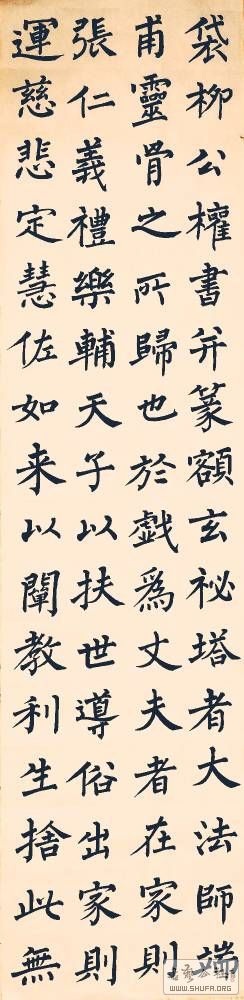 袋柳公權書并篆額玄祕塔者大法師端
甫靈骨之所歸也於戯爲丈夫者在家則
張仁義禮樂輔天子以扶世導俗出家則
運慈悲定慧佐如来以闡教利生捨此無
WWW.SHUFA.ORG